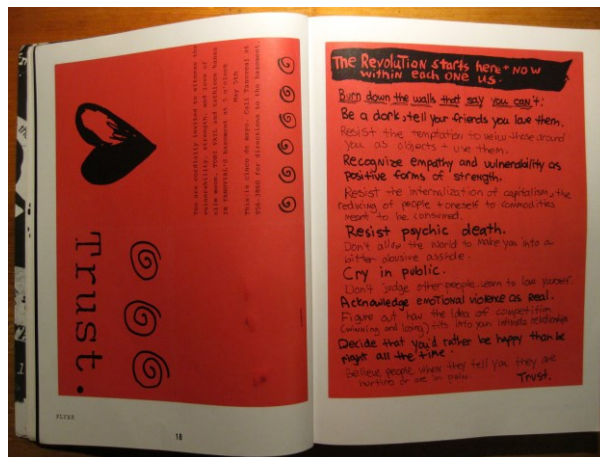 Trust.
You are cordially invited to witness the
vulnerability, strength, and love of
slim moon, TOBI VAIL and kathleen hanna
basement at 5 o'clock
May 5th
This is cinco de mayo. Call at
for directions to the basement
FLYER
18
The Revolution starts here + now
within each one us.
Burn down the walls that say you can't:
Be a dork, tell your friends you love them.
Resist the temptation to veiw those around
you as objects + use them.
Recognize empathy and vulnerability as
positive forms of strength.
Resist the internalization of capitalism, the
reducing of people + oneself to commodities
meant to be consumed.
Resist psychic death.
Don't allow the world to make you into a
bitter abusive asshole.
Cry in public.
Don't judge other people. Learn to love yourself.
Acknowledge emotional violence as Real.
Figure out how the idea of competition
(winning and losing) fits into your intimate relationships
Decide that you'd rather be happy than be
right all the time.
Believe people when they tell you they are
hurting or are in pain.
Trust.